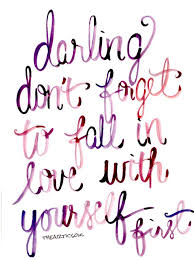 darling
don't forget
to fall in
love with
yourself
first